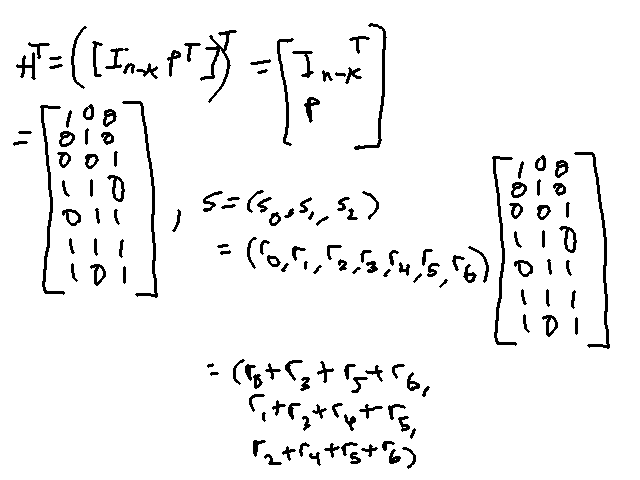 H^T = ([I_{n-k} P^T])^T = [I_{n-k}^T
P]
= [1 0 0
0 1 0
0 0 1
1 1 0
0 1 1
1 1 1
1 0 1] , s = (s_0, s_1, s_2)
= (r_0, r_1, r_2, r_3, r_4, r_5, r_6) [1 0 0
0 1 0
0 0 1
1 1 0
0 1 1
1 1 1
1 0 1]
= (r_0 + r_3 + r_5 + r_6,
r_1 + r_3 + r_4 + r_5,
r_2 + r_4 + r_5 + r_6)